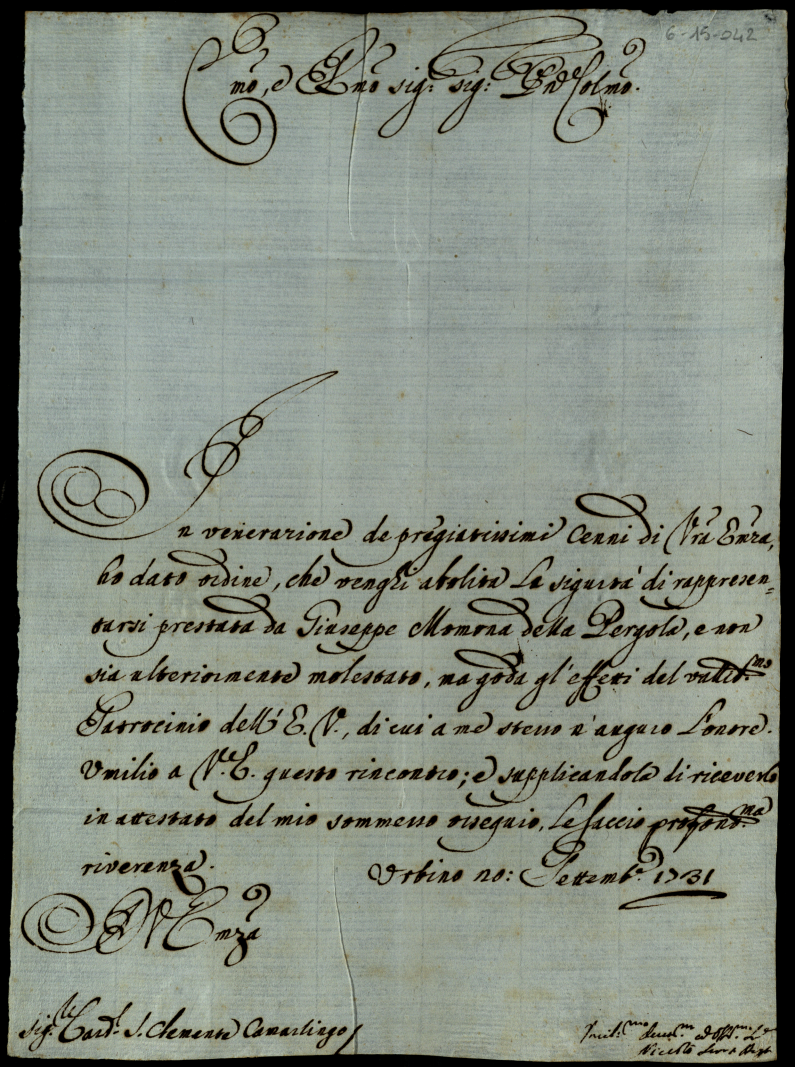 6-15-042
Emo, e Rmo Sig.r Sig.r Pne Colmo.
In venerazione de pregiatissimi Cenni di Vra Emza,
ho dato ordine, che venghi abolita La sigurtà di rappresen=
tarsi prestata da Giuseppe Momona della Pergola, e non
sia ulteriormente molestato, ma goda gl'effetti del valid.mo
Patrocinio dell'E. V., di cui a me stesso n'auguro L'onore.
Umilio a V. E. questo rincontro; e supplicandola di riceverlo
in attestato del mio sommesso ossequio, Le faccio profond.ma
riverenza. Urbino 20: Settemb.e 1731
V Emza
Sig.r Card.l S. Clemente Camarlingo